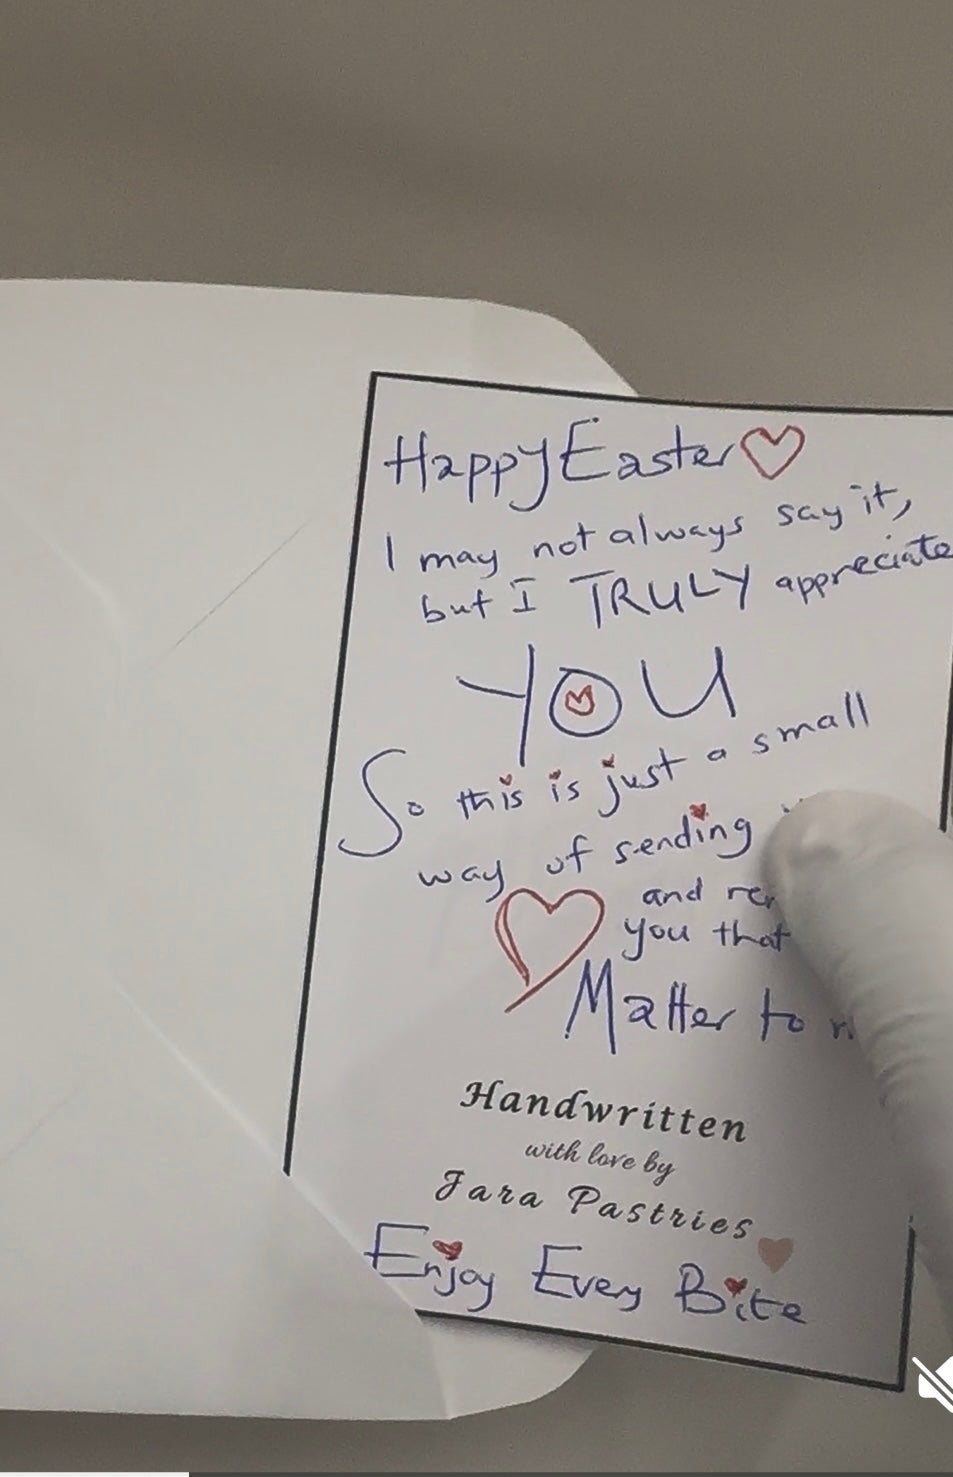 Happy Easter
I may not always say it,
but I TRULY appreciate
YOU
So this is just a small
way of sending
and
you that
Matter to
Handwritten
with love by
Jara Pastries
Enjoy Every Bite